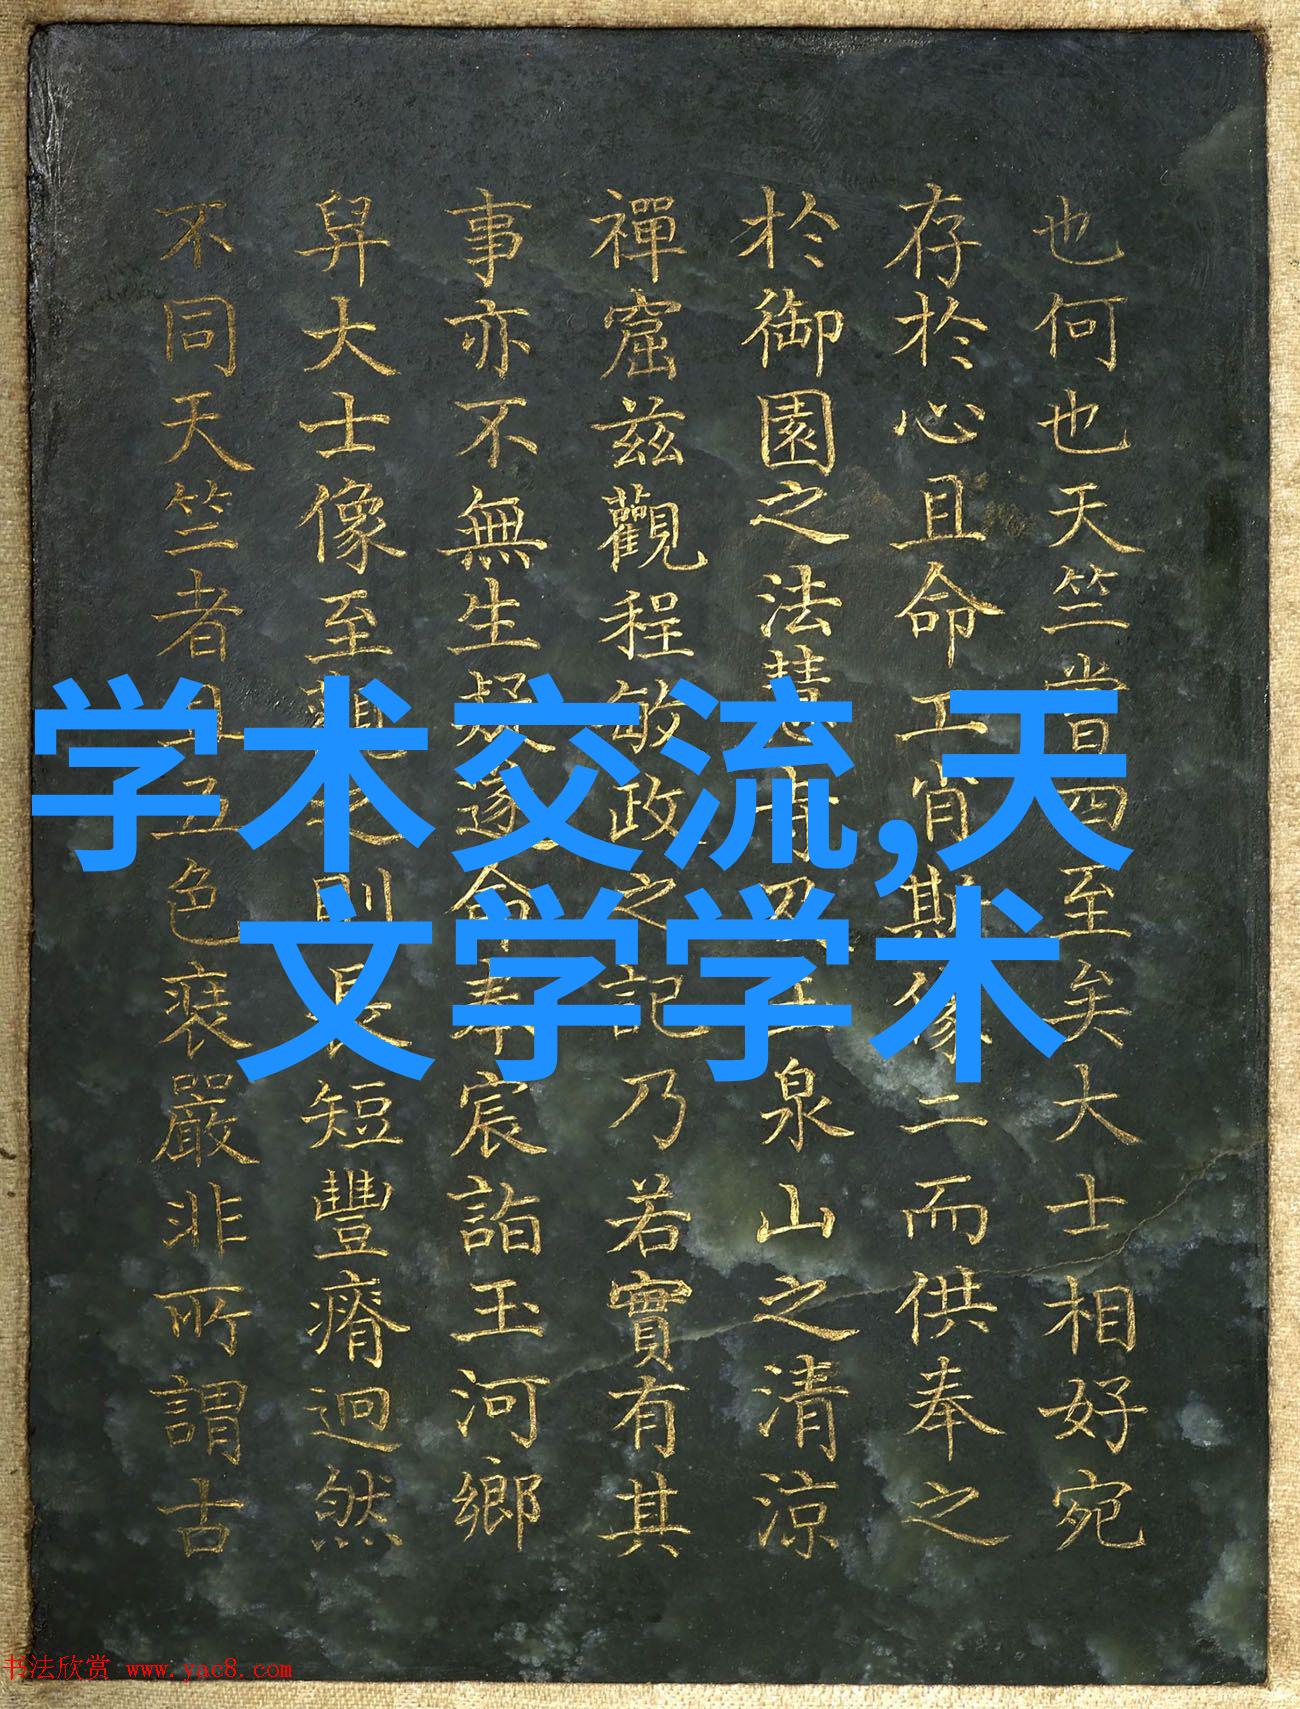 学术交流,天
文学学术
也何也天竺四至矣大士相好宛
存於心且命工肖斯像二而供奉之
於御園之法慧寺及玉泉山之清涼
禪窟茲觀程敏政之記乃若實有其
事亦不無生疑遂命奉宸詣玉河鄉
舁大士像至之則長短豐瘠迥然
不同天竺者五色裝嚴非所謂古
书法欣赏 www.yac8.com